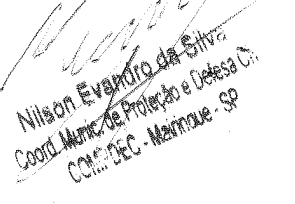 Nilson Evandro da Silva
Coord. Munic. de Proteção e Defesa Ci
COMDEC - Mairinque - SP